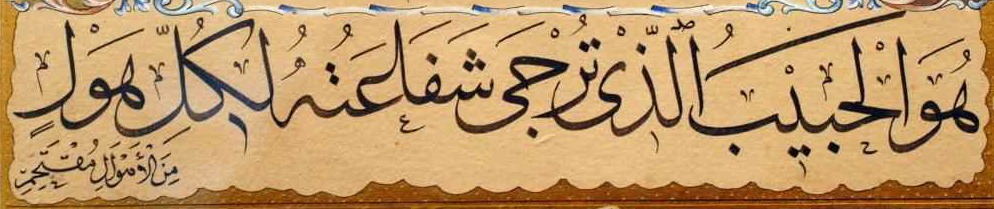 هُوَ الْحَبِيْبُ الَّذِى تُرْجَى شَفَاعَتُهُ لِكُلِّ هَوْلٍ
مِنَ الْأَهْوَالِ مُقْتَحِمِ